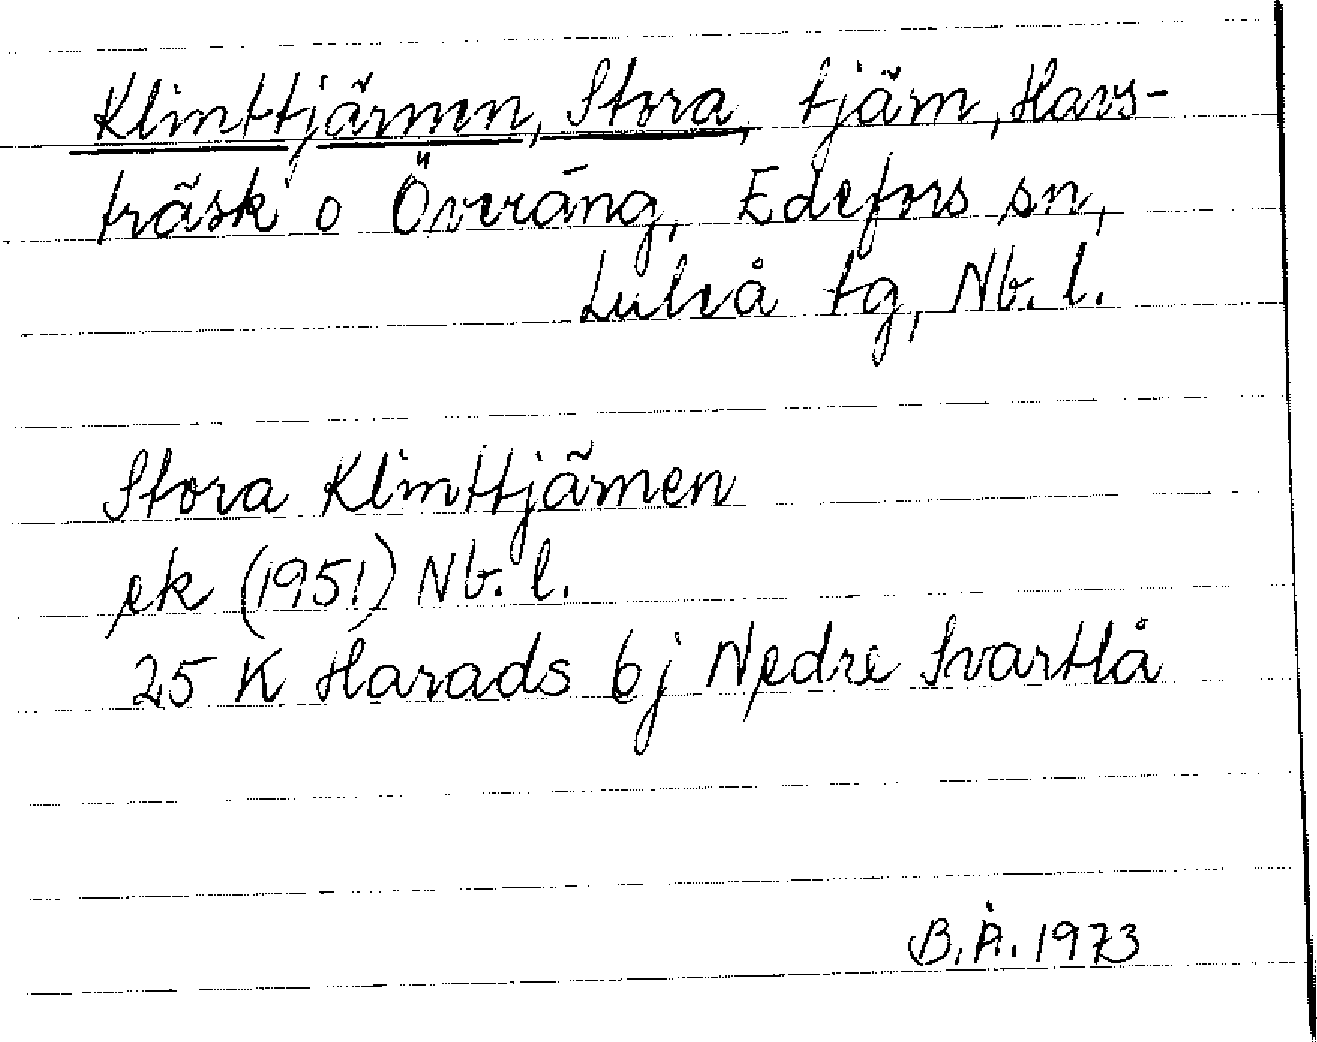 Klimttjärnen, Stora, tjärn, Havs-
träsk o Överäng, Edefors sn,
Luleå tg, Nb. l.
Stora Klimttjärnen
ek (1951) Nb. l.
25 K Harads 6j Nedre Svartlå
B.Å. 1973